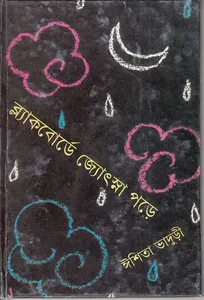 ব্ল্যাকবোর্ডে জ্যোৎস্না পড়ে
ঈশিতা ভাদুড়ী